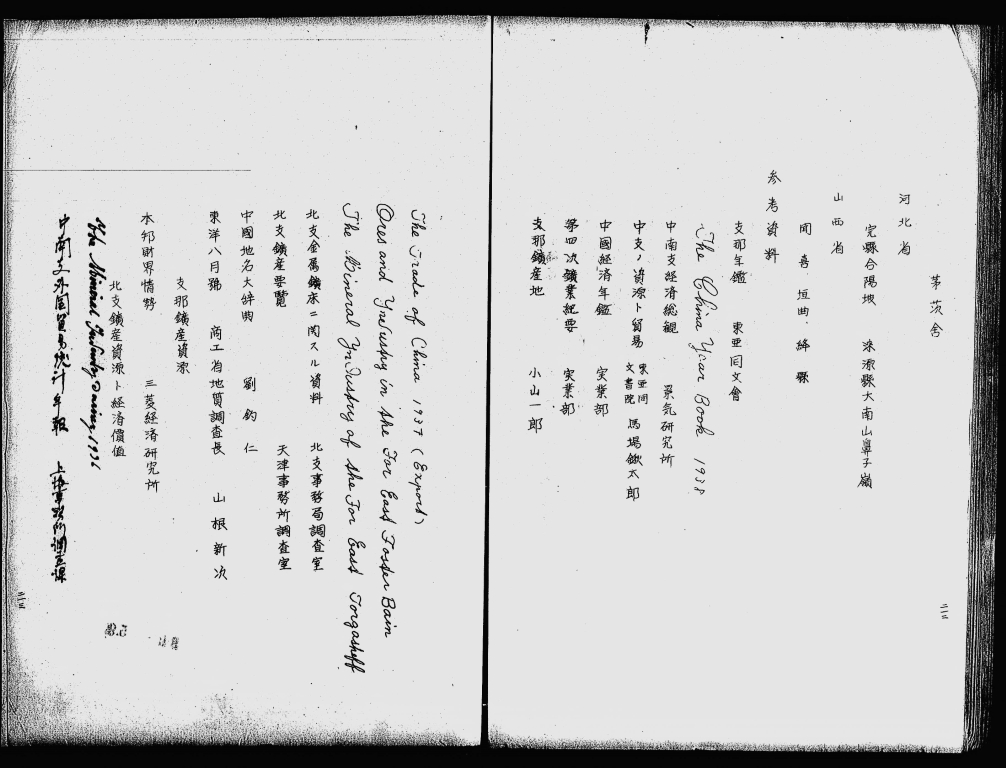 茅茨舎
河北省
完縣合陽坡 淶源縣大南山鼻子嶺
山西省
聞喜 垣曲 絳縣
参考資料
支那年鑑 東亜同文會
The China Year Book 1938
中南支経済総観 景気研究所
中支ノ資源ト貿易 東亜同文書院 馬場鍬太郎
中國経済年鑑 実業部
第四次鑛業紀要 実業部
支那鑛産地 小山一郎
The Trade of China 1937 (Export)
Ores and Industry in the Far East Foster Bain
The Mineral Industry of the Far East Torgasheff
北支金属鑛床ニ関スル資料 北支事務局調査室
北支鑛産要覽 天津事務所調査室
中國地名大辞典 劉鈞仁
東洋八月號 商工省地質調査長 山根新次
支那鑛産資源
本邦財界情勢 三菱経済研究所
北支鑛産資源ト経済價値
The Mineral Industry During 1936
中南支外国貿易統計年報 上海事務所調査課